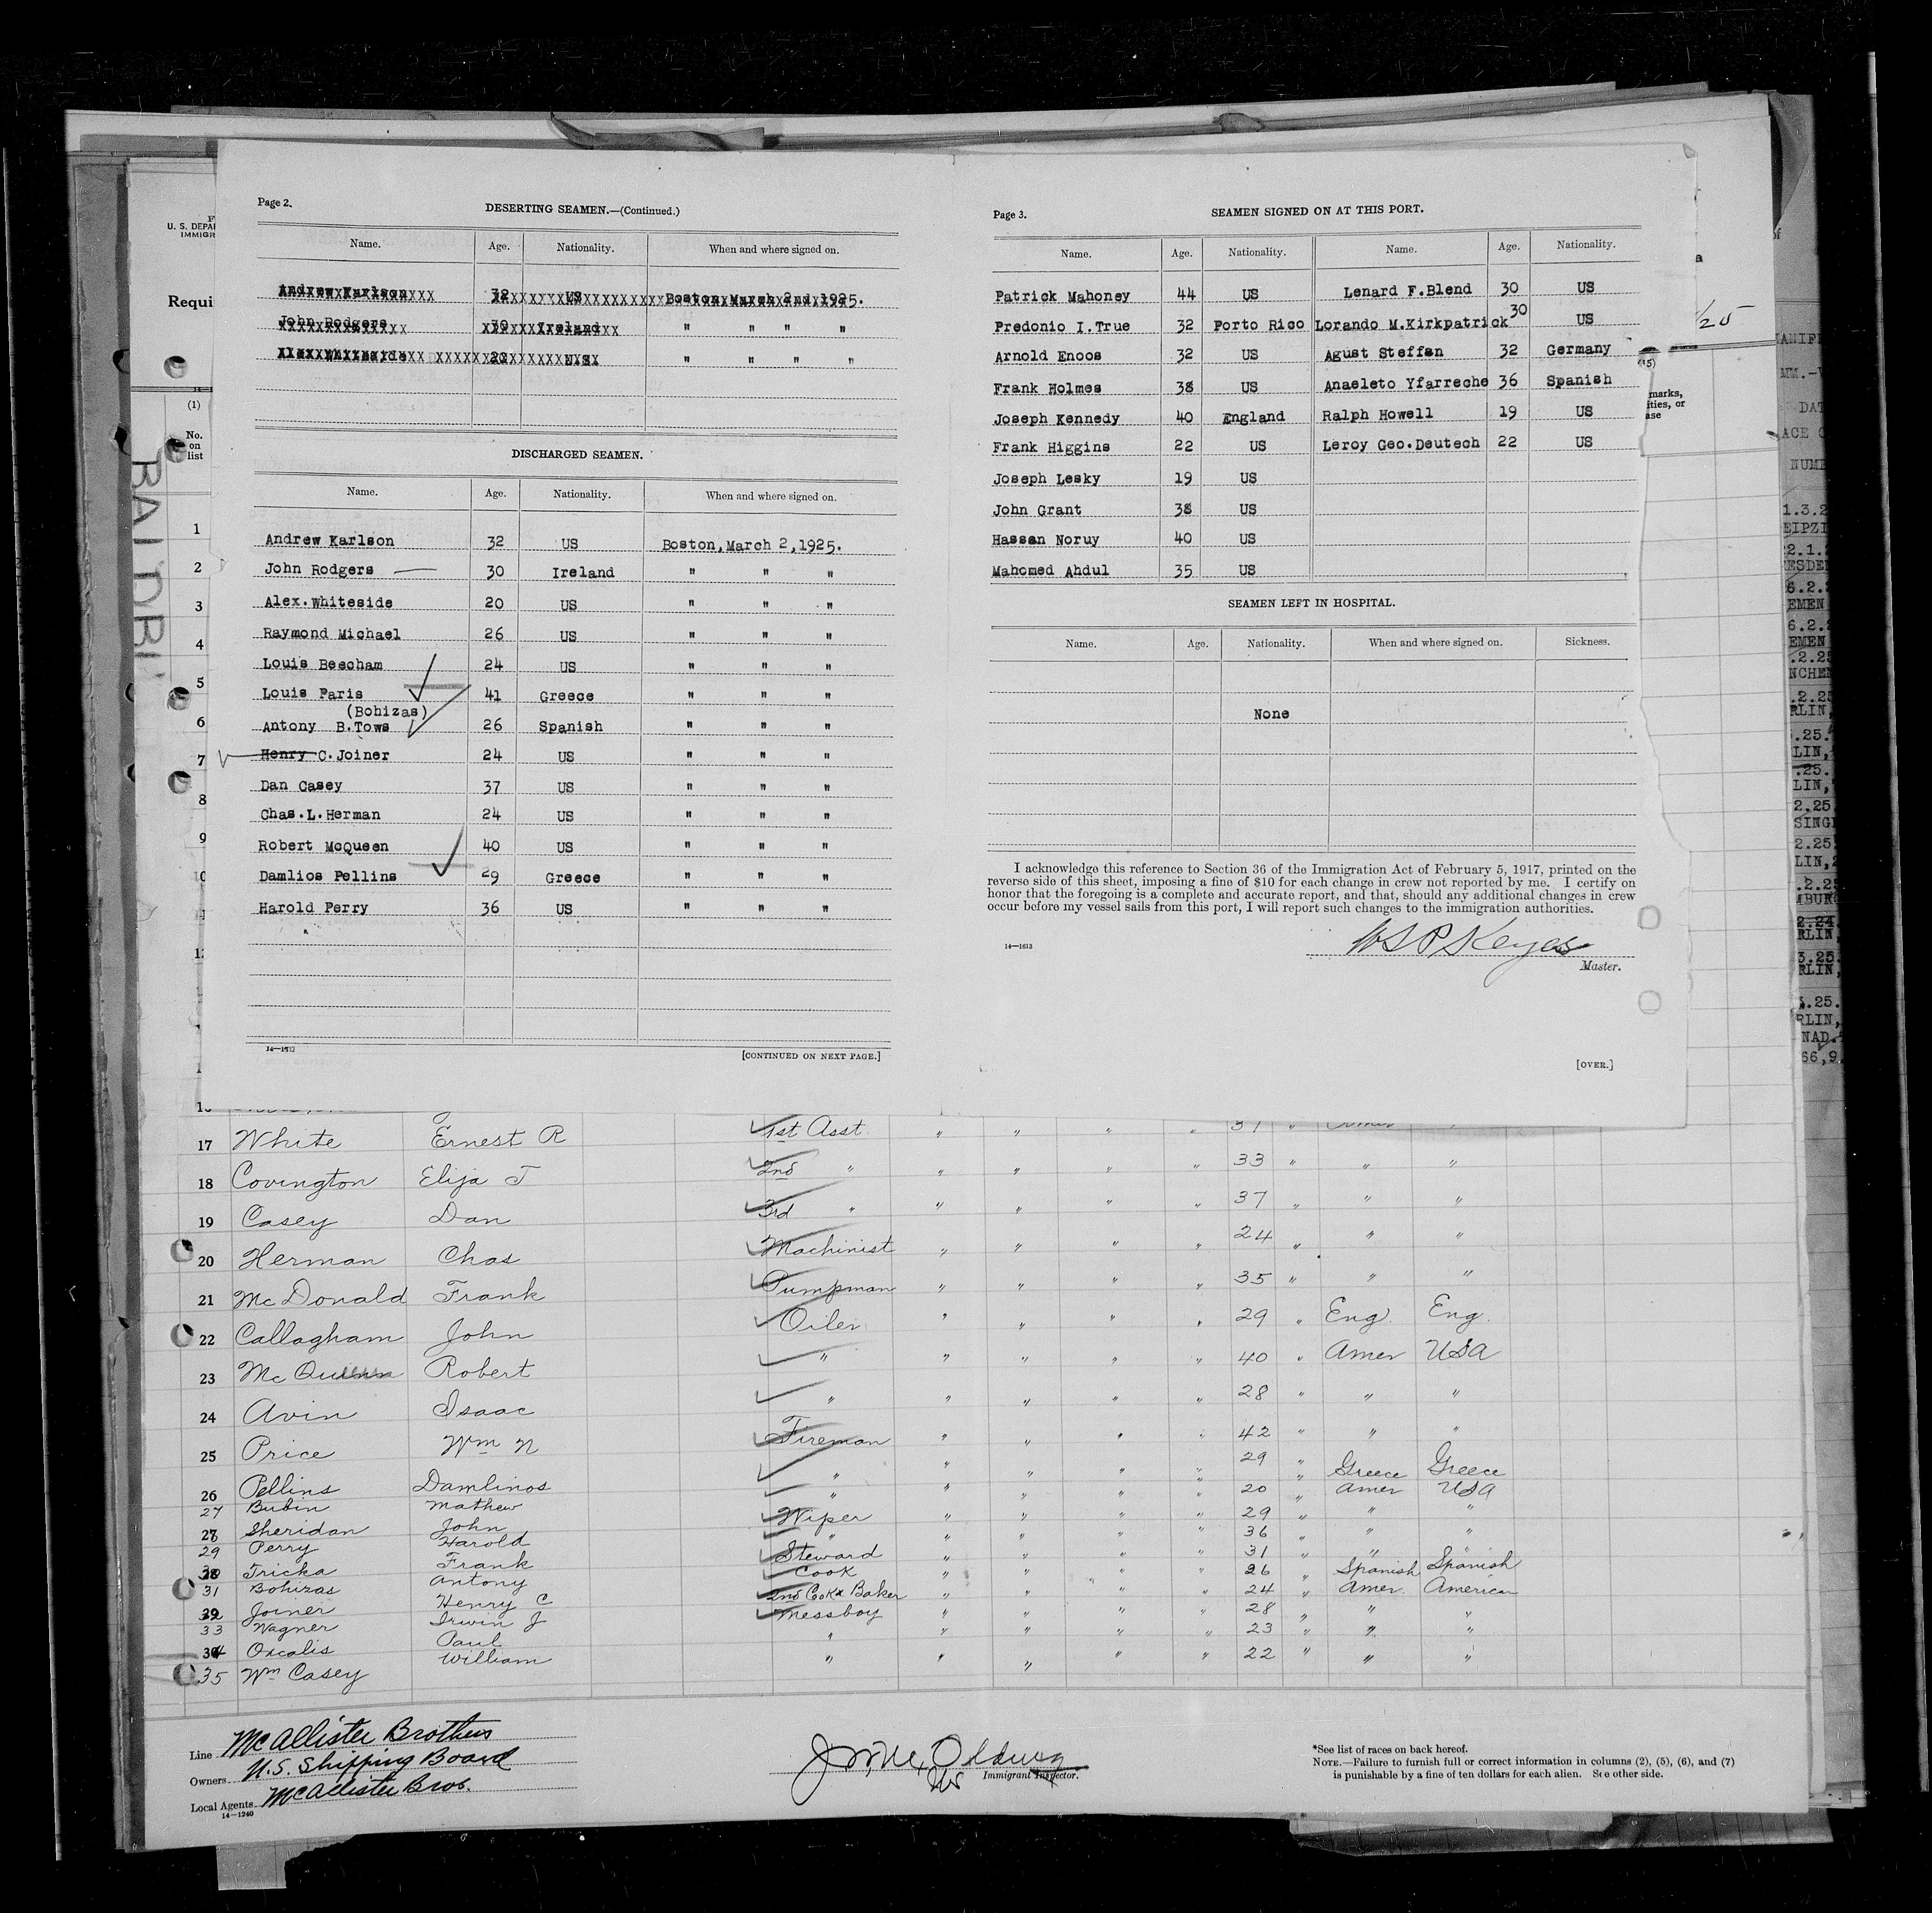 Page 2.
DESERTING SEAMEN.—(Continued.)
Name. Age. Nationality. When and where signed on.
Andrew Karlson 32 US Boston, March 2nd 1925.
John Rodgers 30 Ireland " " " "
Alex Whiteside 20 US " " " "
DISCHARGED SEAMEN.
Name. Age. Nationality. When and where signed on.
Andrew Karlson 32 US Boston, March 2, 1925.
John Rodgers 30 Ireland " " "
Alex. Whiteside 20 US " " "
Raymond Michael 26 US " " "
Louis Beecham 24 US " " "
Louis Paris 41 Greece " " "
(Bohizas)
Antony B. Tows 26 Spanish " " "
Henry C. Joiner 24 US " " "
Dan Casey 37 US " " "
Chas. L. Herman 24 US " " "
Robert McQueen 40 US " " "
Damlios Pellins 29 Greece " " "
Harold Perry 36 US " " "
14—1613
[CONTINUED ON NEXT PAGE.]
Page 3.
SEAMEN SIGNED ON AT THIS PORT.
Name. Age. Nationality. Name. Age. Nationality.
Patrick Mahoney 44 US Lenard F. Blend 30 US
Predonio I. True 32 Porto Rico Lorando M. Kirkpatrick 30 US
Arnold Enoos 32 US Agust Steffan 32 Germany
Frank Holmes 38 US Anaeleto Yfarreche 36 Spanish
Joseph Kennedy 40 England Ralph Howell 19 US
Frank Higgins 22 US Leroy Geo. Deutech 22 US
Joseph Lesky 19 US
John Grant 38 US
Hassan Noruy 40 US
Mahomed Ahdul 35 US
SEAMEN LEFT IN HOSPITAL.
Name. Age. Nationality. When and where signed on. Sickness.
None
I acknowledge this reference to Section 36 of the Immigration Act of February 5, 1917, printed on the
reverse side of this sheet, imposing a fine of $10 for each change in crew not reported by me. I certify on
honor that the foregoing is a complete and accurate report, and that, should any additional changes in crew
occur before my vessel sails from this port, I will report such changes to the immigration authorities.
14—1613
W S P Keyes
Master.
[OVER.]
U. S. DEPA
IMMIGR
Requi
(1)
No.
on
list
1
2
3
4
5
6
7
8
9
10
17 White Ernest R 1st Asst. " " " " 37 " Amer "
18 Covington Elija T 2nd " " " " " 33 " " "
19 Casey Dan 3rd " " " " " 37 " " "
20 Herman Chas Machinist " " " " 24 " " "
21 McDonald Frank Pumpman " " " " 35 " " "
22 Callagham John Oiler " " " " 29 " Eng. Eng.
23 Robert " " " " " 40 " Amer USA
24 Avin Isaac " " " " " 28 " " "
25 Price Wm N Fireman " " " " 42 " " "
26 Pellins Damlinos " " " " " 29 " Greece Greece
27 Bubin Mathew " " " " " 20 " Amer USA
28 Sheridan John Wiper " " " " 29 " " "
29 Perry Harold " " " " " 36 " " "
30 Tricka Frank Steward " " " " 31 " " "
31 Bohizas Antony Cook " " " " 26 " Spanish Spanish
32 Joiner Henry C 2nd Cook & Baker " " " " 24 " Amer. American
33 Wagner Irwin J Messboy " " " " 28 " " "
34 Oxcalis Paul " " " " " 23 " " "
35 Wm Casey William " " " " " 22 " " "
Line McAllister Brothers
Owners U.S. Shipping Board
Local Agents McAllister Bros.
14—1240
Immigrant Inspector.
*See list of races on back hereof.
NOTE.—Failure to furnish full or correct information in columns (2), (5), (6), and (7)
is punishable by a fine of ten dollars for each alien. See other side.